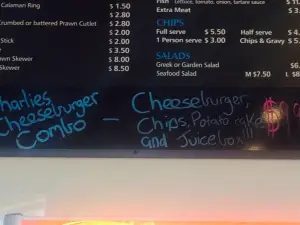 Calamari Ring $ 1.50
$ 2.80
Crumbed or battered Prawn Cutlet $ 2.80
$ 2.00
Stick $ 2.00
$ 3.50
Prawn Skewer $ 8.00
Skewer $ 8.50
Fish lettuce, tomato, onion, tartare sauce $ 11.
Extra Meat $ 3.
CHIPS
Full serve $ 5.50 Half serve $ 4.
1 Person serve $ 3.00 Chips & Gravy $ 5.
SALADS
Greek or Garden Salad $6.
Seafood Salad M $7.50 L $8
Charlies
Cheeseburger
Combo
— Cheeseburger,
Chips, Potato cake
and Juicebox!!!
$